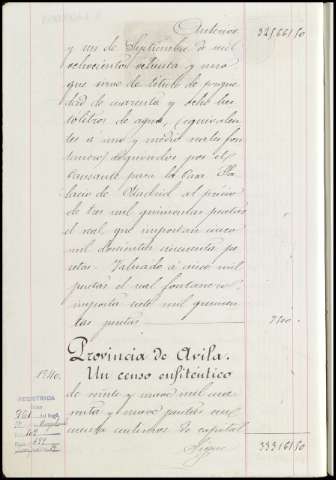 Anterior 325,661'50
y un de Septiembre de mil
ochocientos ochenta y uno
que sirve de título de propie
dad de cuarenta y ocho hec
tolitros de agua, (equivalen
tes á uno y medio reales fon
taneros) adquiridos por el
causante para la Casa Pa
lacio de Madrid al precio
de tres mil quinientas pesetas
el real que importaron cinco
mil doscientas cincuenta pe
setas. Valuado á cinco mil
pesetas el real fontanero
importa siete mil quinien
tas pesetas. 7500
Provincia de Avila.
1240. Un censo enfitéutico
de veinte y nueve mil cua
renta y nueve pesetas cin
cuenta céntimos de capital
Sigue 333,161'50
REGISTRADA